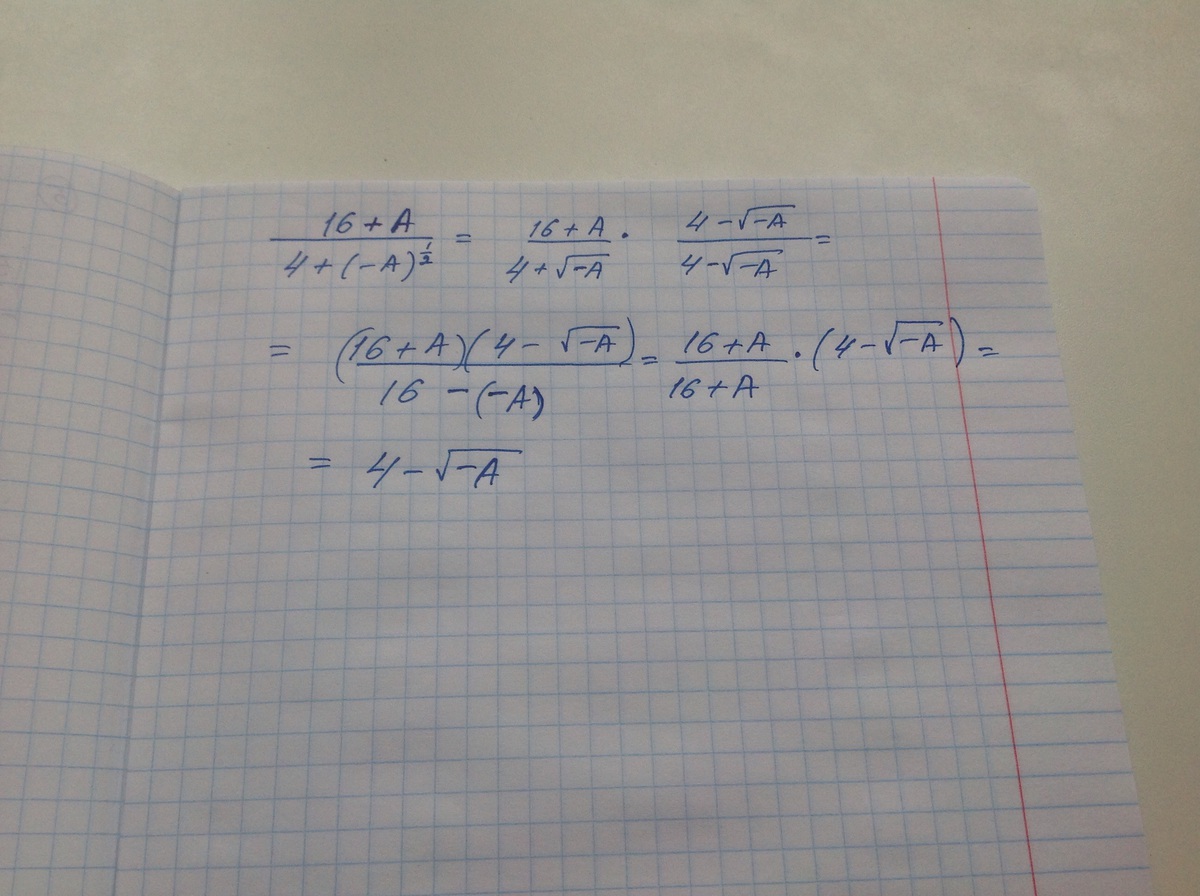 (16 + A)/(4 + (-A)^(1/2)) = (16 + A)/(4 + √(-A)) · (4 - √(-A))/(4 - √(-A)) =
= ((16 + A)(4 - √(-A)))/(16 - (-A)) = (16 + A)/(16 + A) · (4 - √(-A)) =
= 4 - √(-A)